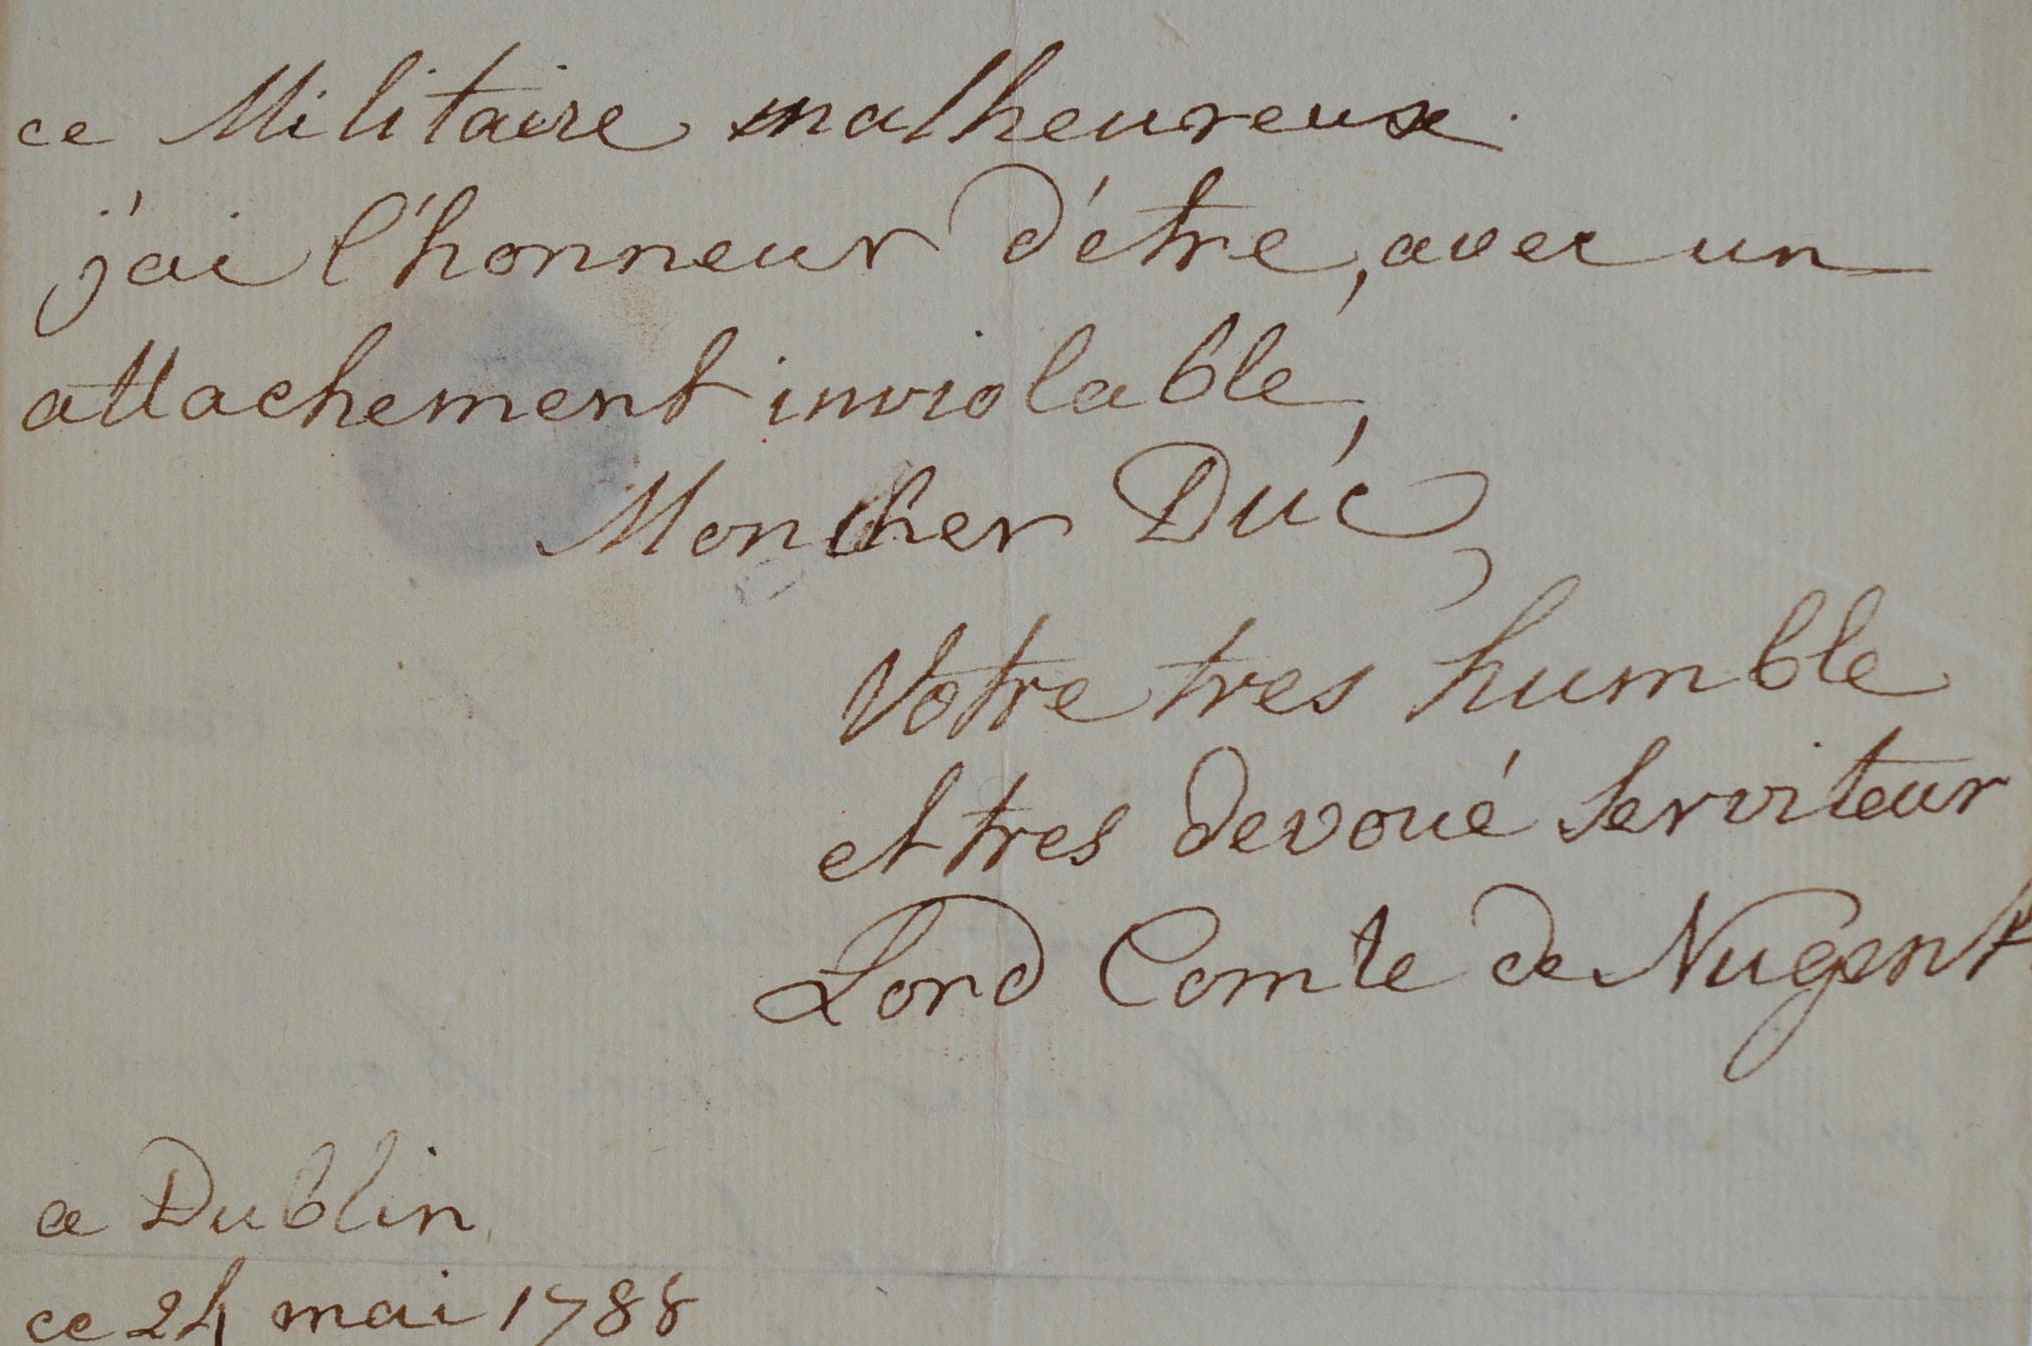 ce Militaire malheureux.
j'ai l'honneur d'étre, avec un
attachement inviolable,
Mon cher Duc,
Votre tres humble
et tres devoué Serviteur
Lord Comte de Nugent
a Dublin
ce 24 mai 1788